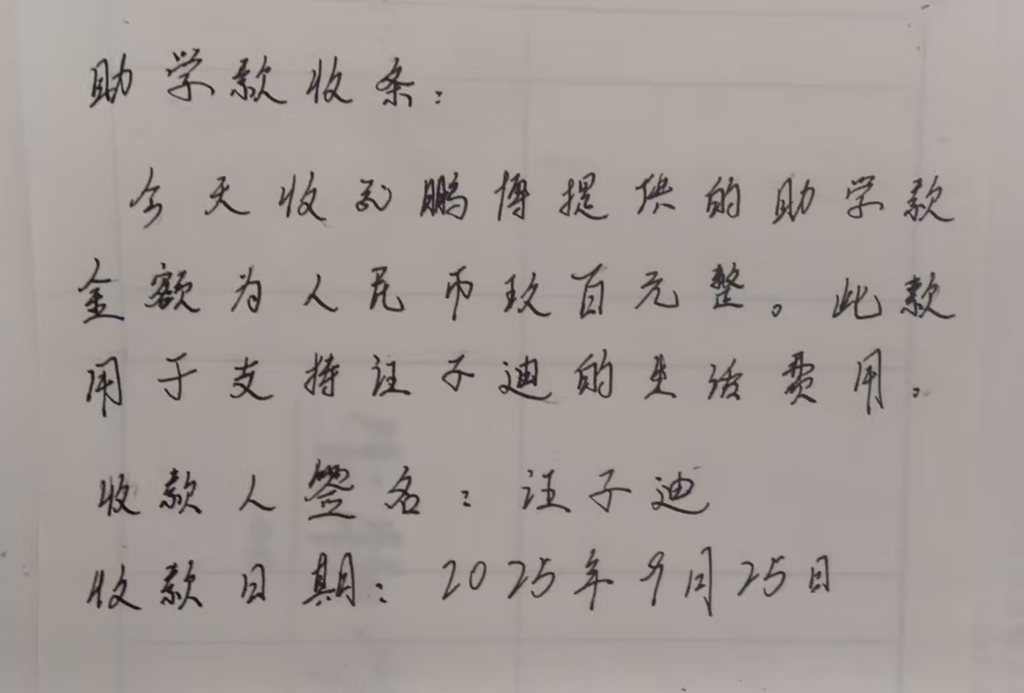 助学款收条:
今天收到鹏博提供的助学款
金额为人民币玖百元整。此款
用于支持汪子迪的生活费用。
收款人签名:汪子迪
收款日期:2025年9月25日